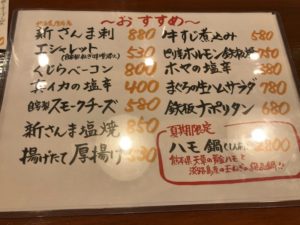 ～おすすめ～
新さんま刺 880
エシャレット 530
くじらベーコン 800
イカの塩辛 400
自家製スモークチーズ 580
新さんま塩焼 850
揚げたて厚揚げ
牛すじ煮込み 580
ホルモン鉄板
ホヤの塩辛 380
まぐろの生ハムサラダ 780
鉄板ナポリタン 680
夏期限定
ハモ鍋 2800
淡路島産の玉ねぎ